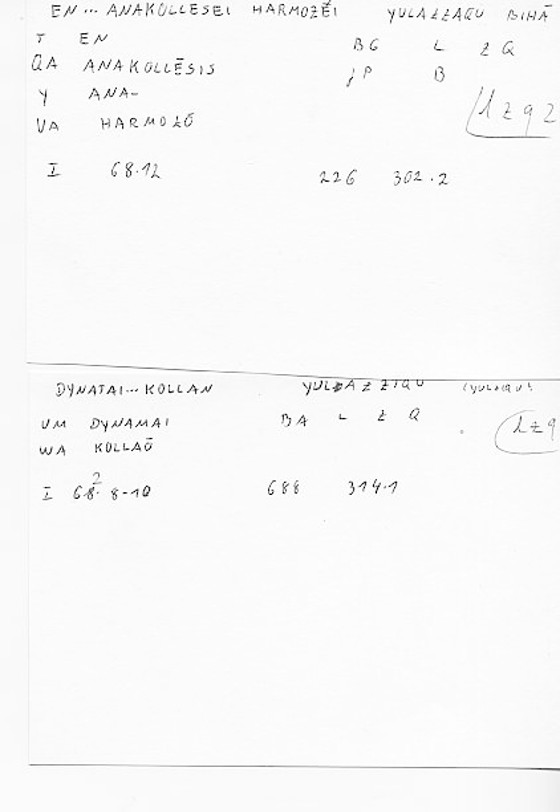 EN ... ANAKOLLESEI HARMOZEI YULAŻŻAQU BIHĀ
T EN BG L Ż Q
QA ANAKOLLĒSIS jP B
Y ANA-
VA HARMOZŌ
lżq 2
I 68.12 226 302.2
DYNATAI ... KOLLAN
UM DYNAMAI BA L Ż Q
WA KOLLAŌ
lżq
I 68. 8-10 688 314.1